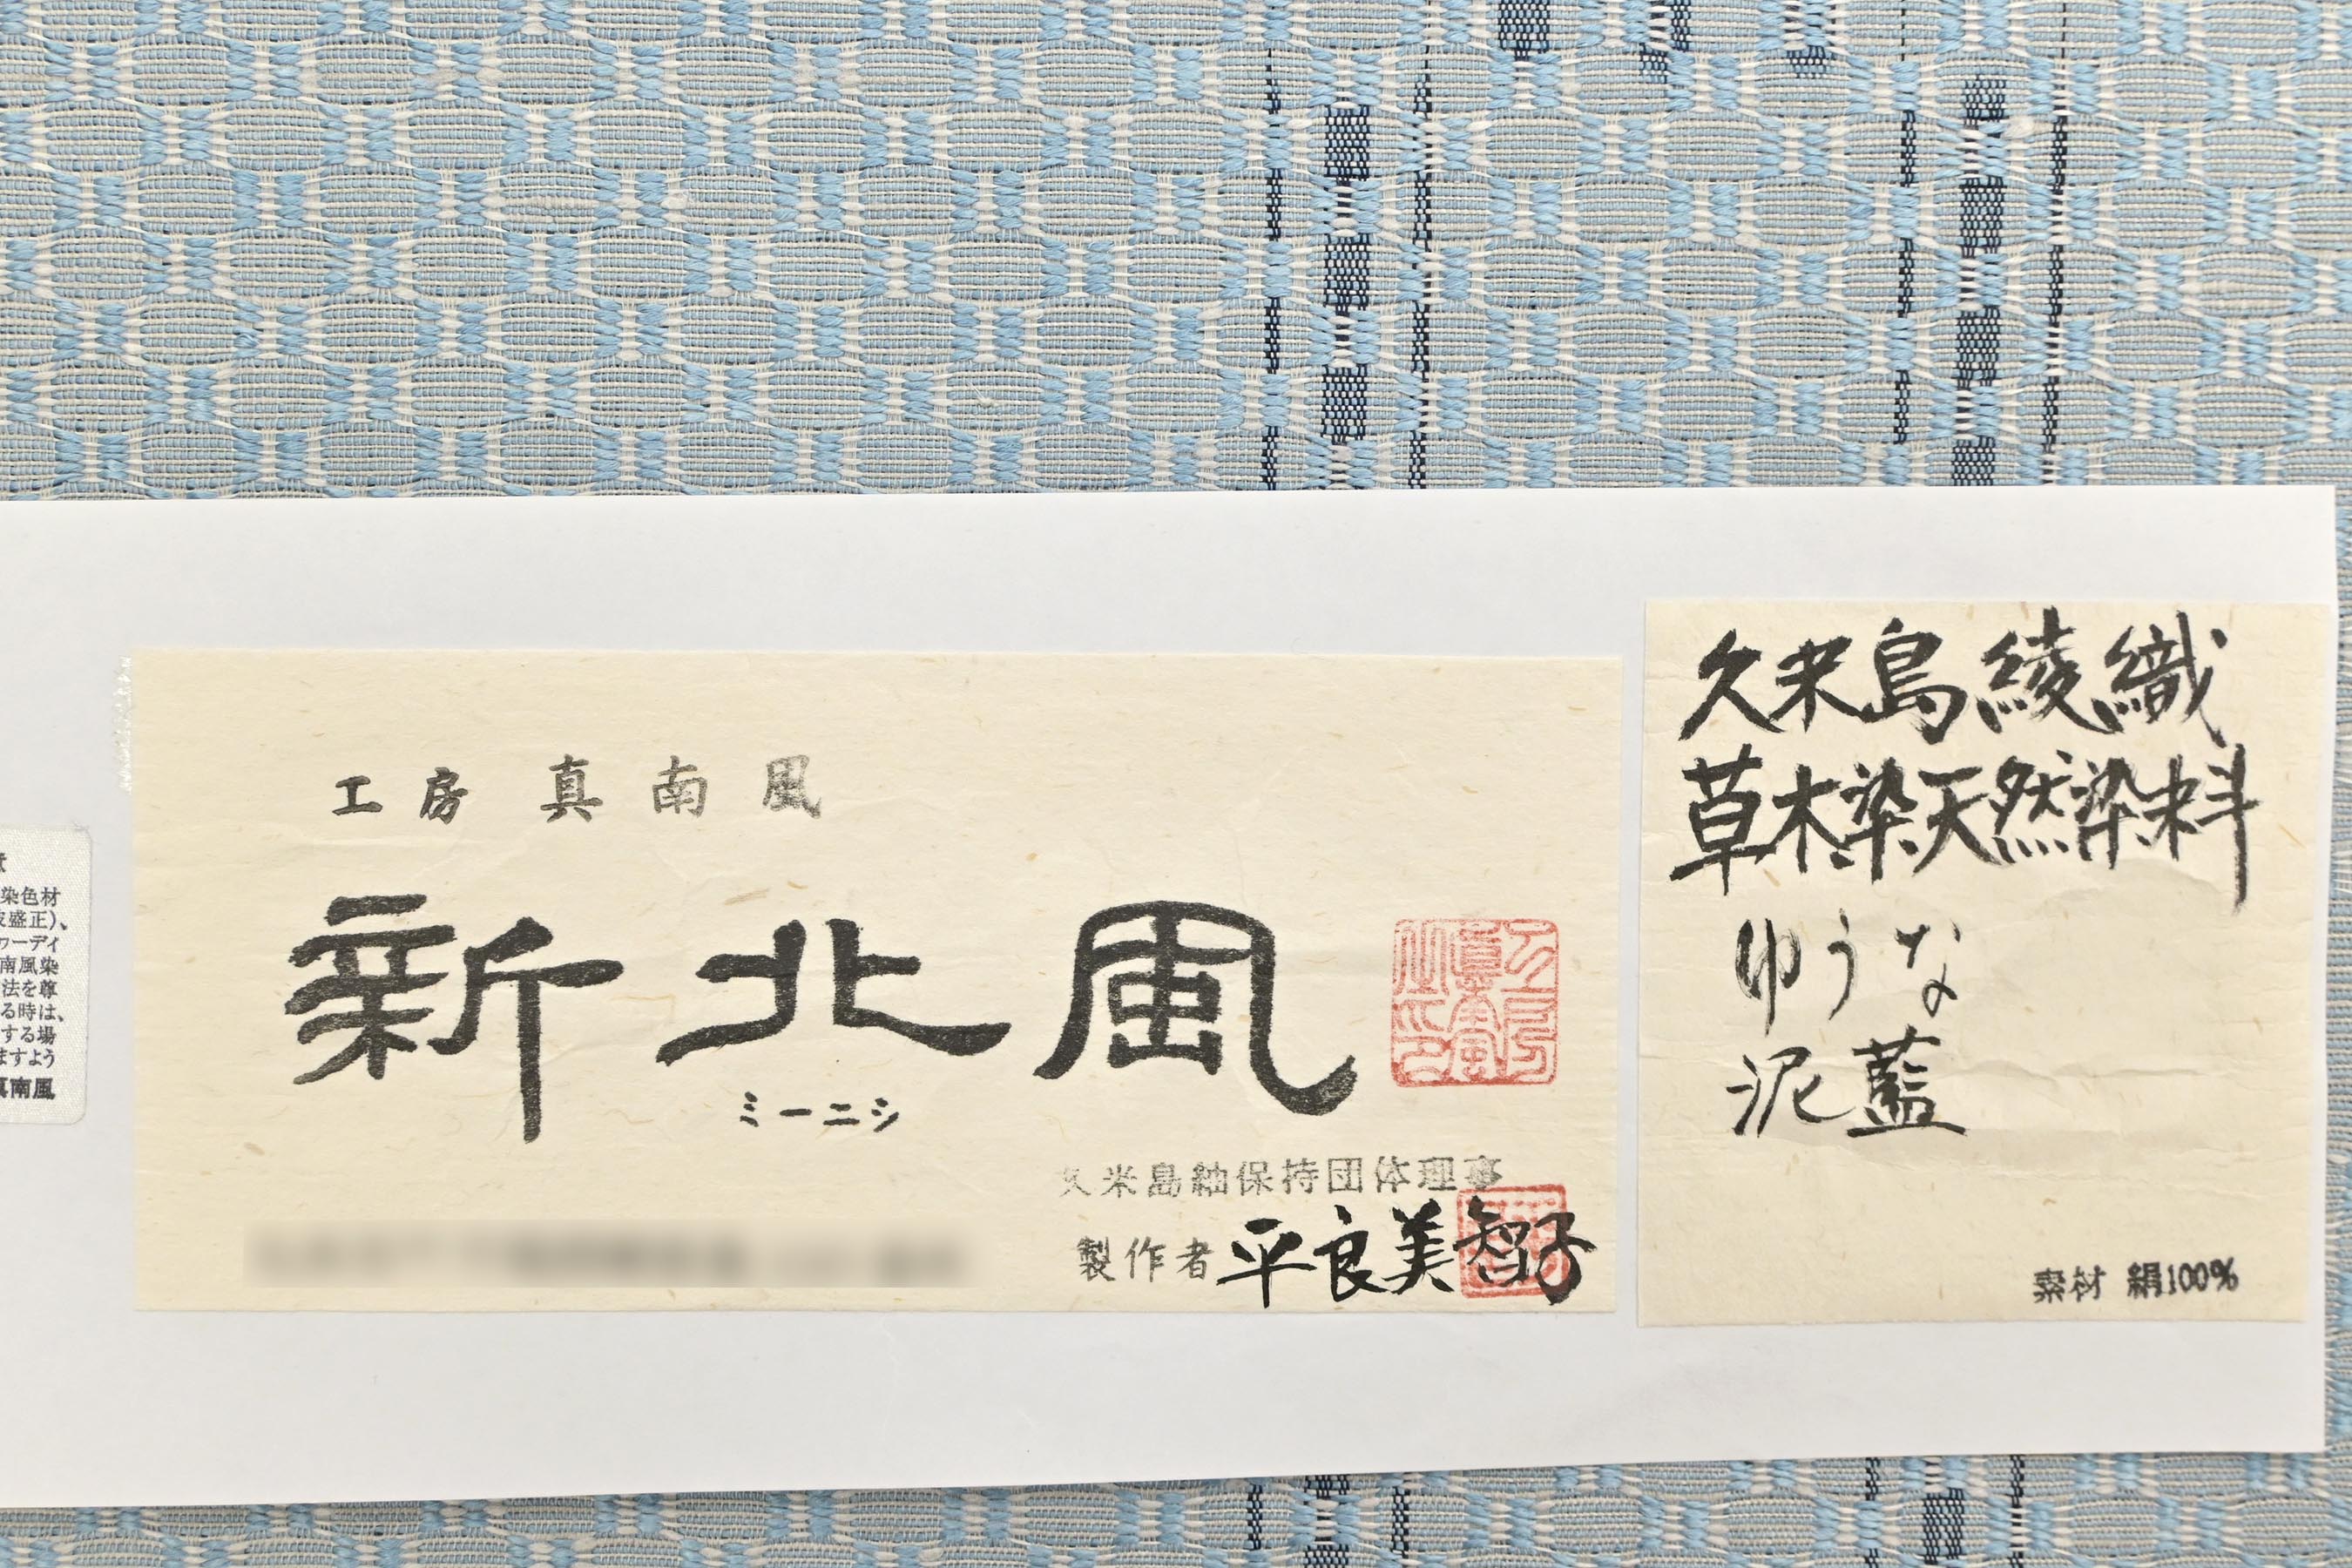 染色材
盛正)、
ワーディ
南風染
法を尊
る時は、
する場
ますよう
真南風
工房 真南風
新北風
ミーニシ
久米島紬保持団体理事
製作者 平良美智子
久米島綾織
草木染天然染料
ゆうな
泥藍
素材 絹100%